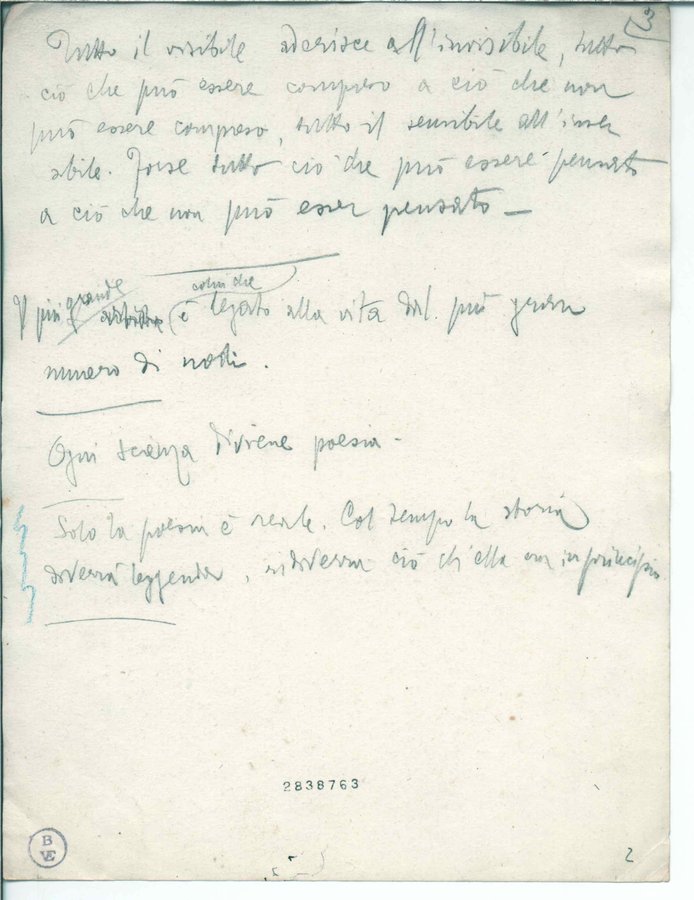 3
Tutto il visibile aderisce all'invisibile, tutto
ciò che può essere compreso a ciò che non
può essere compreso, tutto il sensibile all'insen
sibile. Forse tutto ciò che può essere pensato
a ciò che non può esser pensato —
grande colui che
Il più è legato alla vita dal più gran
numero di nodi.
Ogni scienza diviene poesia -
Solo la poesia è reale. Col tempo la storia
diverrà leggenda, ridiverrà ciò ch'ella era in principio
2838763
B
VE
2